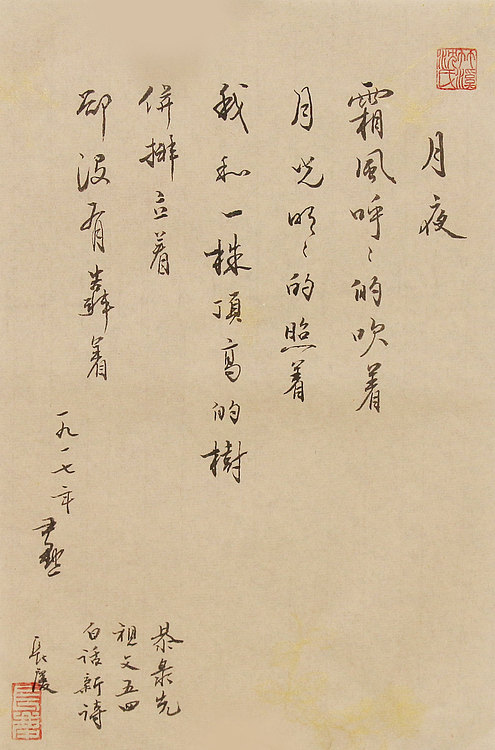 竹溪沈氏
月夜
霜風呼々的吹着
月光明々的照着
我和一株頂高的樹
併排立着
却没有靠着
一九一七年 尹默
恭录先
祖父五四
白话新詩
長慶